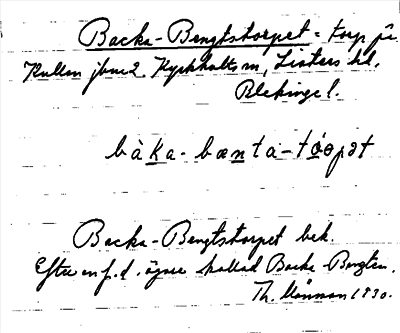 Backa-Bengtstorpet = torp på
Kullen jbnr 2 Kyrkhults sn, Listers hd,
Blekinge l.
bàka-bænta-tóopət
Backa-Bengtstorpet bek.
Efter en f.d. ägare kallad Backa-Bengten.
Th. Månsson 1930.